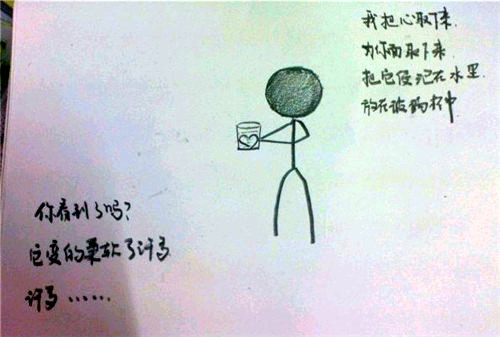 我把心取下来.
为你而取下来.
把它侵泡在水里.
放在玻璃杯中
你看到了吗?
它变的柔软了许多
许多……